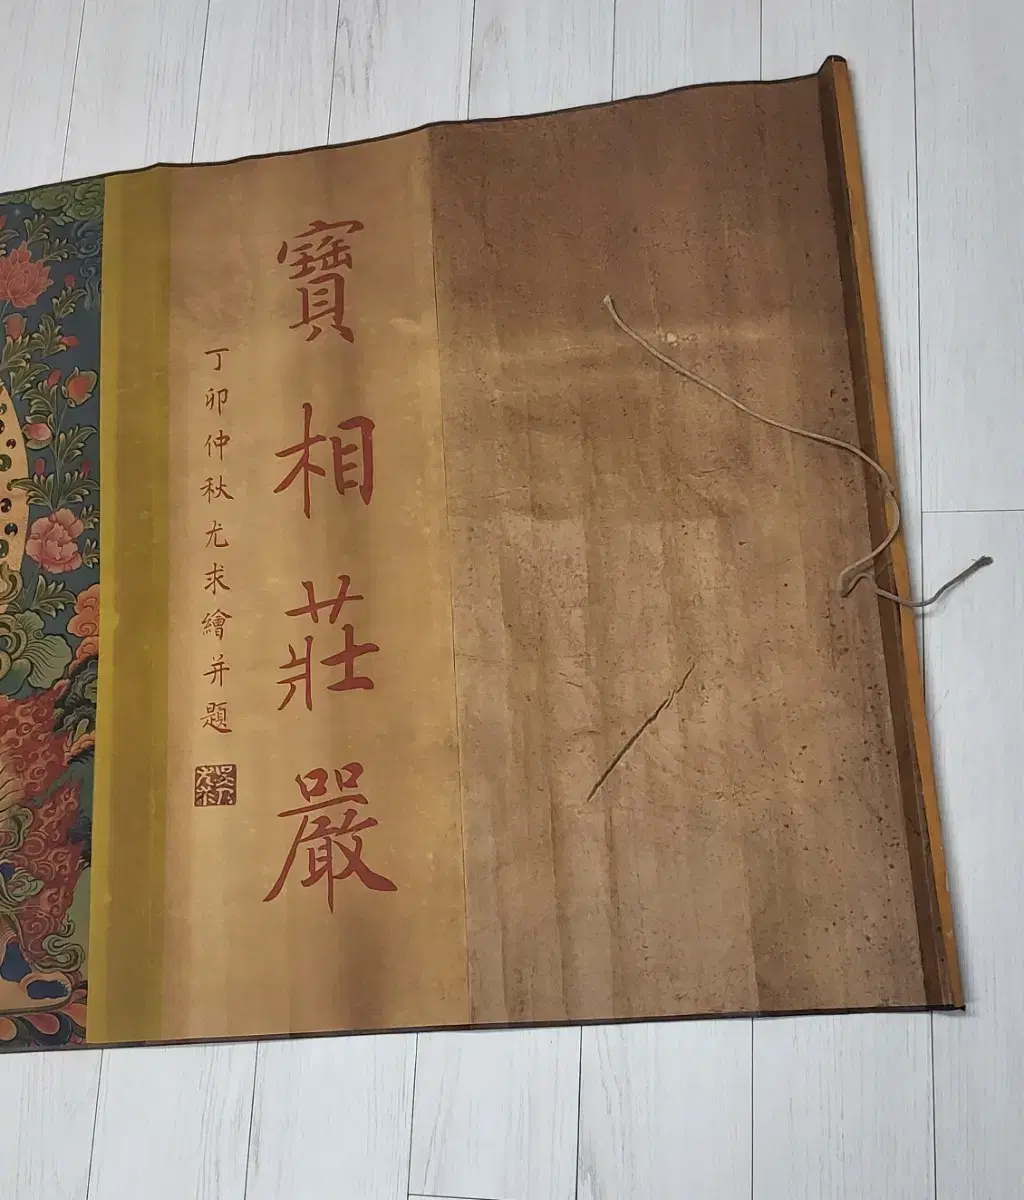 寶相莊嚴
丁卯仲秋尤求繪并題